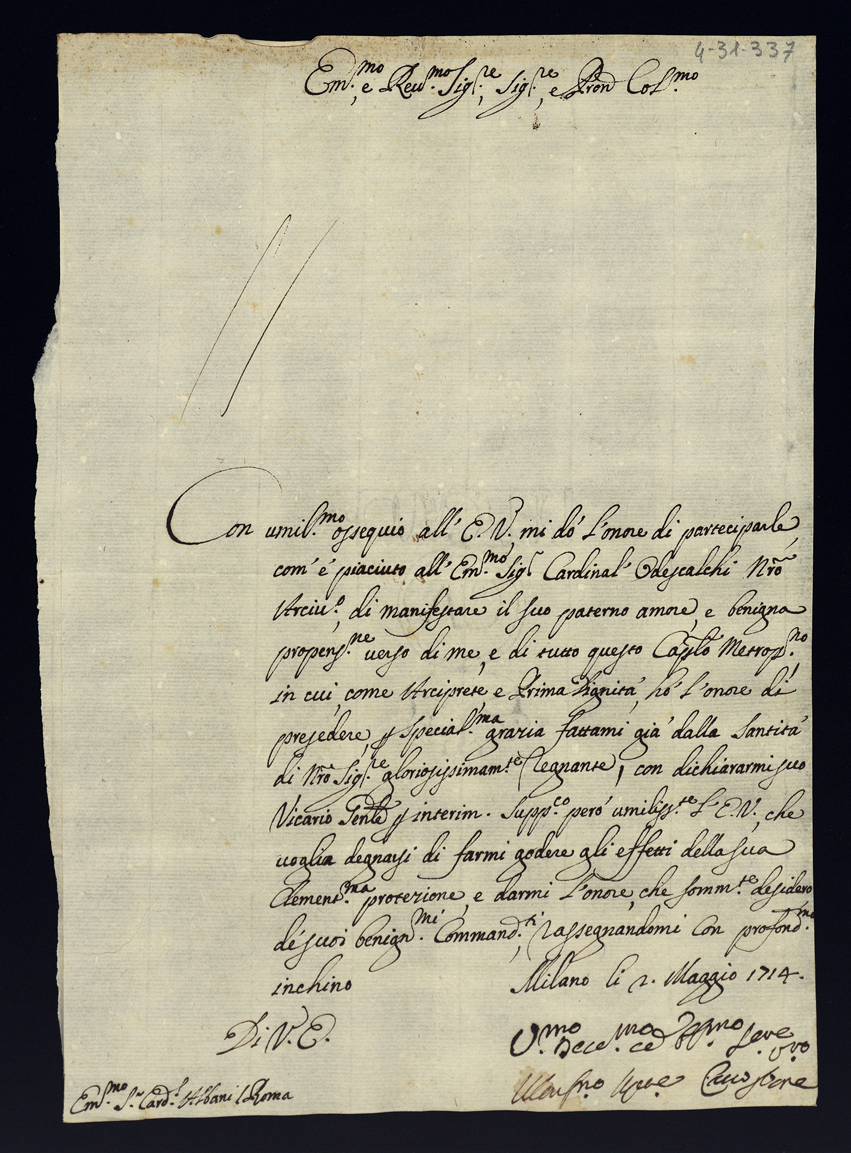 4-31-337
Em.mo, e Reu.mo Sig.re, Sig.re, e Pron Col.mo
Con umil.mo ossequio all' E.V. mi dó l'onore di parteciparle,
com' è piaciuto all' Em.mo Sig.r Cardinal' Odescalchi Nrõ
Arciu.o, di manifestare il suo paterno amore, e benigna
propens.ne verso di me, e di tutto questo Caplo Metrop.no,
in cui, come Arciprete e Prima Dignitá, hó l'onore di
presedere, p special.ma grazia fattami giá dalla Santitá
di Nrõ Sig.re gloriosissimam.te Regnante, con dichiararmi suo
Vicario Genle p interim. Supp.co peró umiliss.te l'E.V., che
voglia degnarsi di farmi godere gli effetti della sua
Clement.ma protezione, e darmi l'onore, che somm.te desidero
dé suoi benign.mi Command.ti, rassegnandomi con profond.mo
inchino
Milano li 2. Maggio 1714.
Di V. E.
V.mo Deu.mo ed Obb.mo Seru.e
v.ro
Em.mo S.r Card.l Albani / Roma